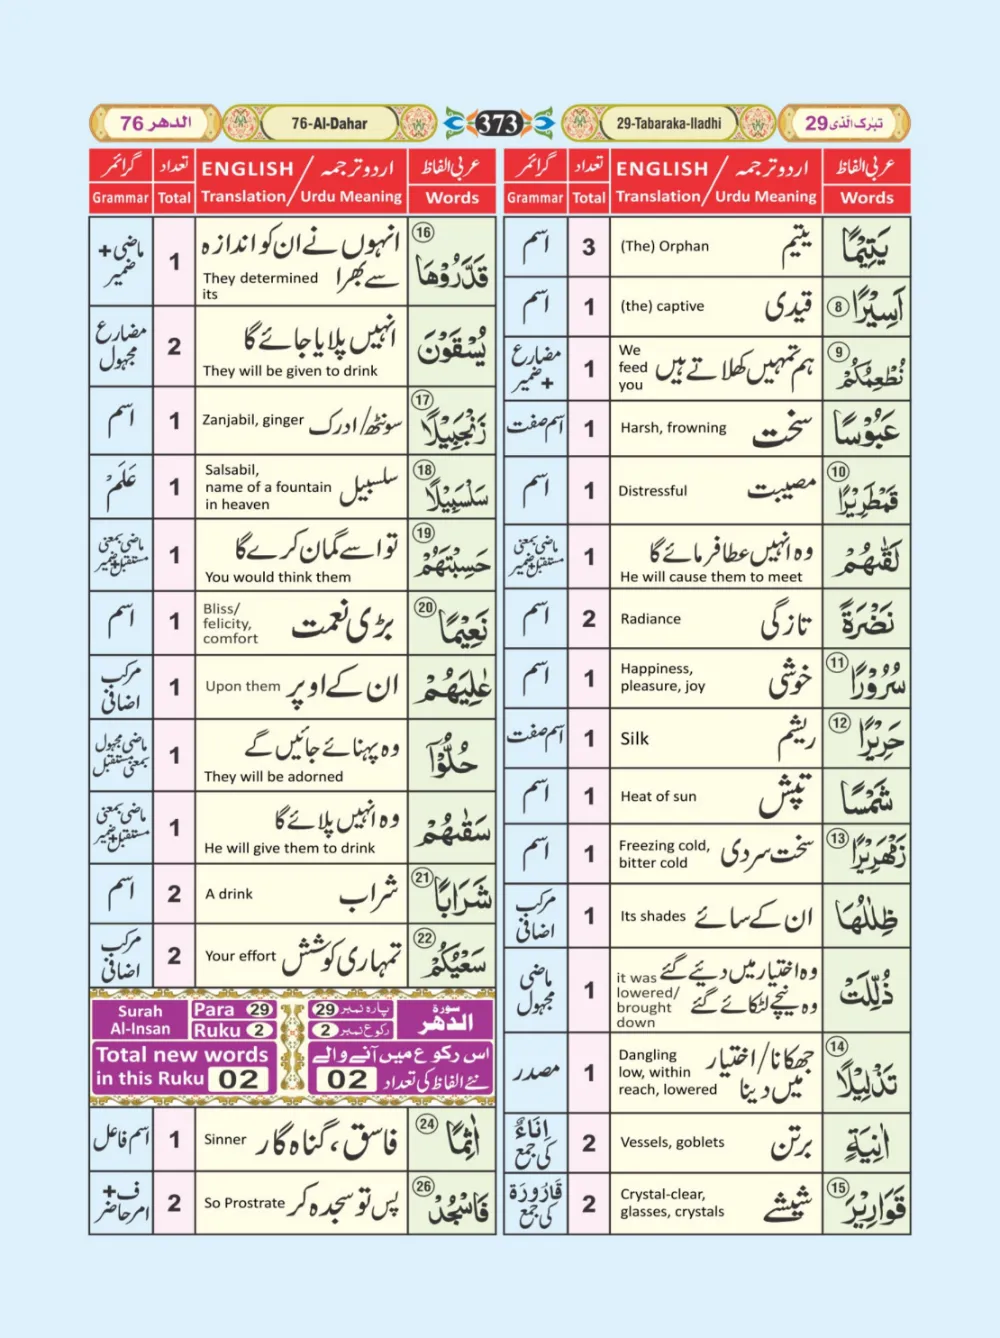 تبٰرک الّذی 29
29-Tabaraka-lladhi
373
76-Al-Dahar
الدهر 76
عربی الفاظ
اردو ترجمہ / ENGLISH
تعداد
گرائمر
Words
Translation / Urdu Meaning
Total
Grammar
يَتِيْمًا
یتیم
(The) Orphan
3
اسم
8
اَسِيْرًا
قیدی
(the) captive
1
اسم
9
نُطْعِمُكُمْ
ہم تمہیں کھلاتے ہیں
We
feed
you
1
مضارع
+ضمیر
عَبُوْسًا
سخت
Harsh, frowning
1
اسم صفت
10
قَمْطَرِيْرًا
مصیبت
Distressful
1
اسم
لَقّٰىهُمْ
وہ انہیں عطا فرمائے گا
He will cause them to meet
1
ماضی بمعنی
مستقبل+ضمیر
نَضْرَةً
تازگی
Radiance
2
اسم
11
سُرُوْرًا
خوشی
Happiness,
pleasure, joy
1
اسم
12
حَرِيْرًا
ریشم
Silk
1
اسم صفت
شَمْسًا
تپش
Heat of sun
1
اسم
13
زَمْهَرِيْرًا
سخت سردی
Freezing cold,
bitter cold
1
اسم
ظِلٰلُهَا
ان کے سائے
Its shades
1
مرکب
اضافی
ذُلِّلَتْ
وہ اختیار میں دیئے گئے
وہ نیچے لٹکائے گئے
it was
lowered/
brought
down
1
ماضی
مجہول
14
تَذْلِيْلًا
جھکانا/اختیار
میں دینا
Dangling
low, within
reach, lowered
1
مصدر
اٰنِيَةٍ
برتن
Vessels, goblets
2
اِنَاءٌ
کی جمع
15
قَوَارِيْرَ
شیشے
Crystal-clear,
glasses, crystals
2
قَارُوْرَة
کی جمع
عربی الفاظ
اردو ترجمہ / ENGLISH
تعداد
گرائمر
Words
Translation / Urdu Meaning
Total
Grammar
16
قَدَّرُوْهَا
انہوں نے ان کو اندازہ
سے بھرا
They determined
its
1
ماضی+
ضمیر
يُسْقَوْنَ
انہیں پلایا جائے گا
They will be given to drink
2
مضارع
مجہول
17
زَنْجَبِيْلًا
سونٹھ/ادرک
Zanjabil, ginger
1
اسم
18
سَلْسَبِيْلًا
سلسبیل
Salsabil,
name of a fountain
in heaven
1
عَلَمْ
19
حَسِبْتَهُمْ
تو اسے گمان کرے گا
You would think them
1
ماضی بمعنی
مستقبل+ضمیر
20
نَعِيْمًا
بڑی نعمت
Bliss/
felicity,
comfort
1
اسم
عٰلِيَهُمْ
ان کے اوپر
Upon them
1
مرکب
اضافی
حُلُّوْٓا
وہ پہنائے جائیں گے
They will be adorned
1
ماضی مجہول
بمعنی مستقبل
سَقٰىهُمْ
وہ انہیں پلائے گا
He will give them to drink
1
ماضی بمعنی
مستقبل+ضمیر
21
شَرَابًا
شراب
A drink
2
اسم
22
سَعْيُكُمْ
تمہاری کوشش
Your effort
2
مرکب
اضافی
Surah
Al-Insan
Para 29
Ruku 2
پارہ نمبر 29
رکوع نمبر 2
سورة
الدهر
Total new words
in this Ruku 02
اس رکوع میں آنے والے
نئے الفاظ کی تعداد 02
24
اٰثِمًا
فاسق، گناہ گار
Sinner
1
اسم فاعل
26
فَاسْجُدْ
پس تو سجدہ کر
So Prostrate
2
ف+
امر حاضر